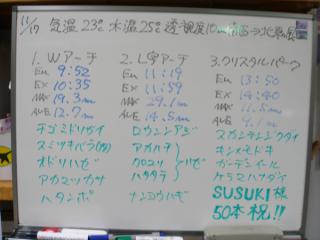 11/17 気温23° 水温25° 透視度
1. Wアーチ
En 9:52
Ex 10:35
MAX 19.3m
AVE 12.7m
チゴミドリガイ
スミツキベラ(幼)
オドリハゼ
アカマツカサ
ハタンポ
2. L字アーチ
En 11:19
Ex 11:59
MAX 29.1m
AVE 14.5m
ロウニンアジ
アカハナ
クロユリ
ハタタテ
ハゼ
ナンヨウハギ
3. クリスタルパーク
En 13:50
Ex 14:40
MAX 11.5m
AVE 9.1m
スカシテンジクダイ
キンメモドキ
ガーデンイール
ケラマハナダイ
SUSUKI様
50本祝!!